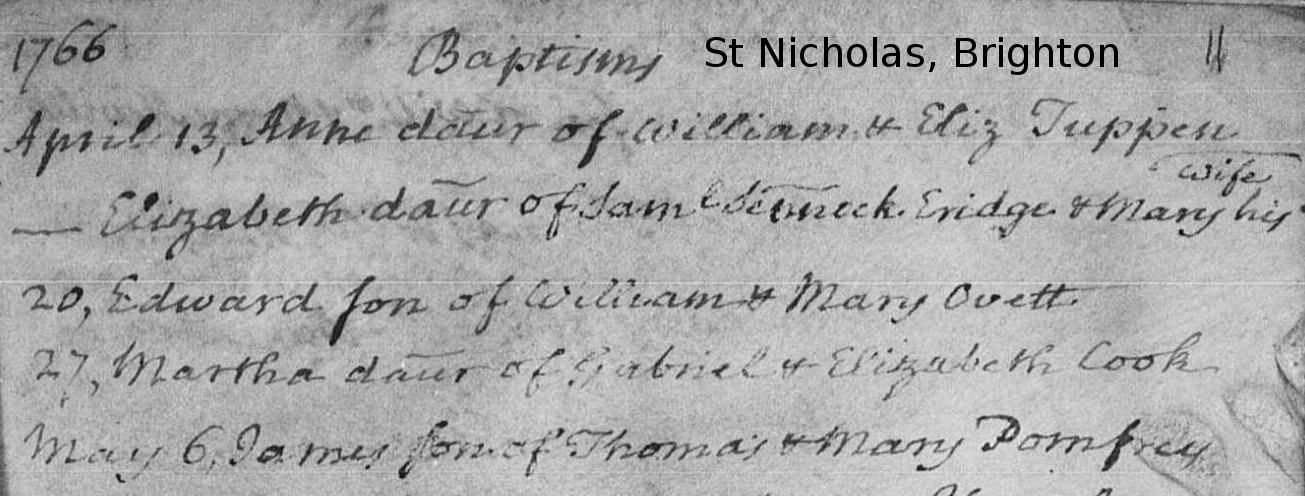 1766 Baptisms St Nicholas, Brighton
April 13, Anne daur of William & Eliz Tuppen
wife
— Elizabeth daur of Saml Eridge & Mary his
20, Edward son of William & Mary Ovett
27, Martha daur of Gabriel & Elizabeth Cook
May 6, James son of Thomas & Mary Pomfrey